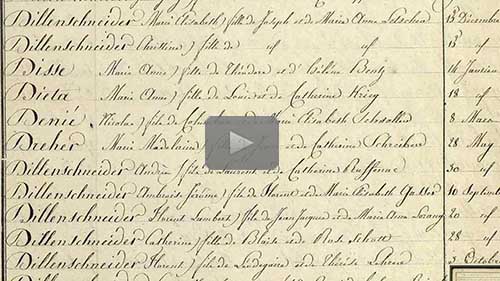 Dillenschneider Marie Elisabeth) fille de Joseph et de Maria Anne 13 Décembre
Dillenschneider Christine) fille de id id 13 id
Disse Marie Anne) fille de Théodore et d' Hélène Bentz 14 Janvier
Dicta Marie Anne) fille de Louis et de Catherine Krieg 18 id
Denié Nicolas) fils de Marie Elisabeth 8 Mars
Dreher Marie Madelaine) fille et de Catherine Schreiber 28 May
Dillenschneider Andrée) fils de Laurent et de Catherine Ruffenac 30 id
Dillenschneider Ambroise Jérôme) fils de Florent et de Marie Elisabeth Gasser 10 Septembre
Dillenschneider Florent Lambert) fils de Jean Jacques et de Marie Anne 20 id
Dillenschneider Catherine) fille de Blaise et de Rose Schott 28 id
Dillenschneider Florent) fils de Léodegaire et de Thérèse 3 Octobre